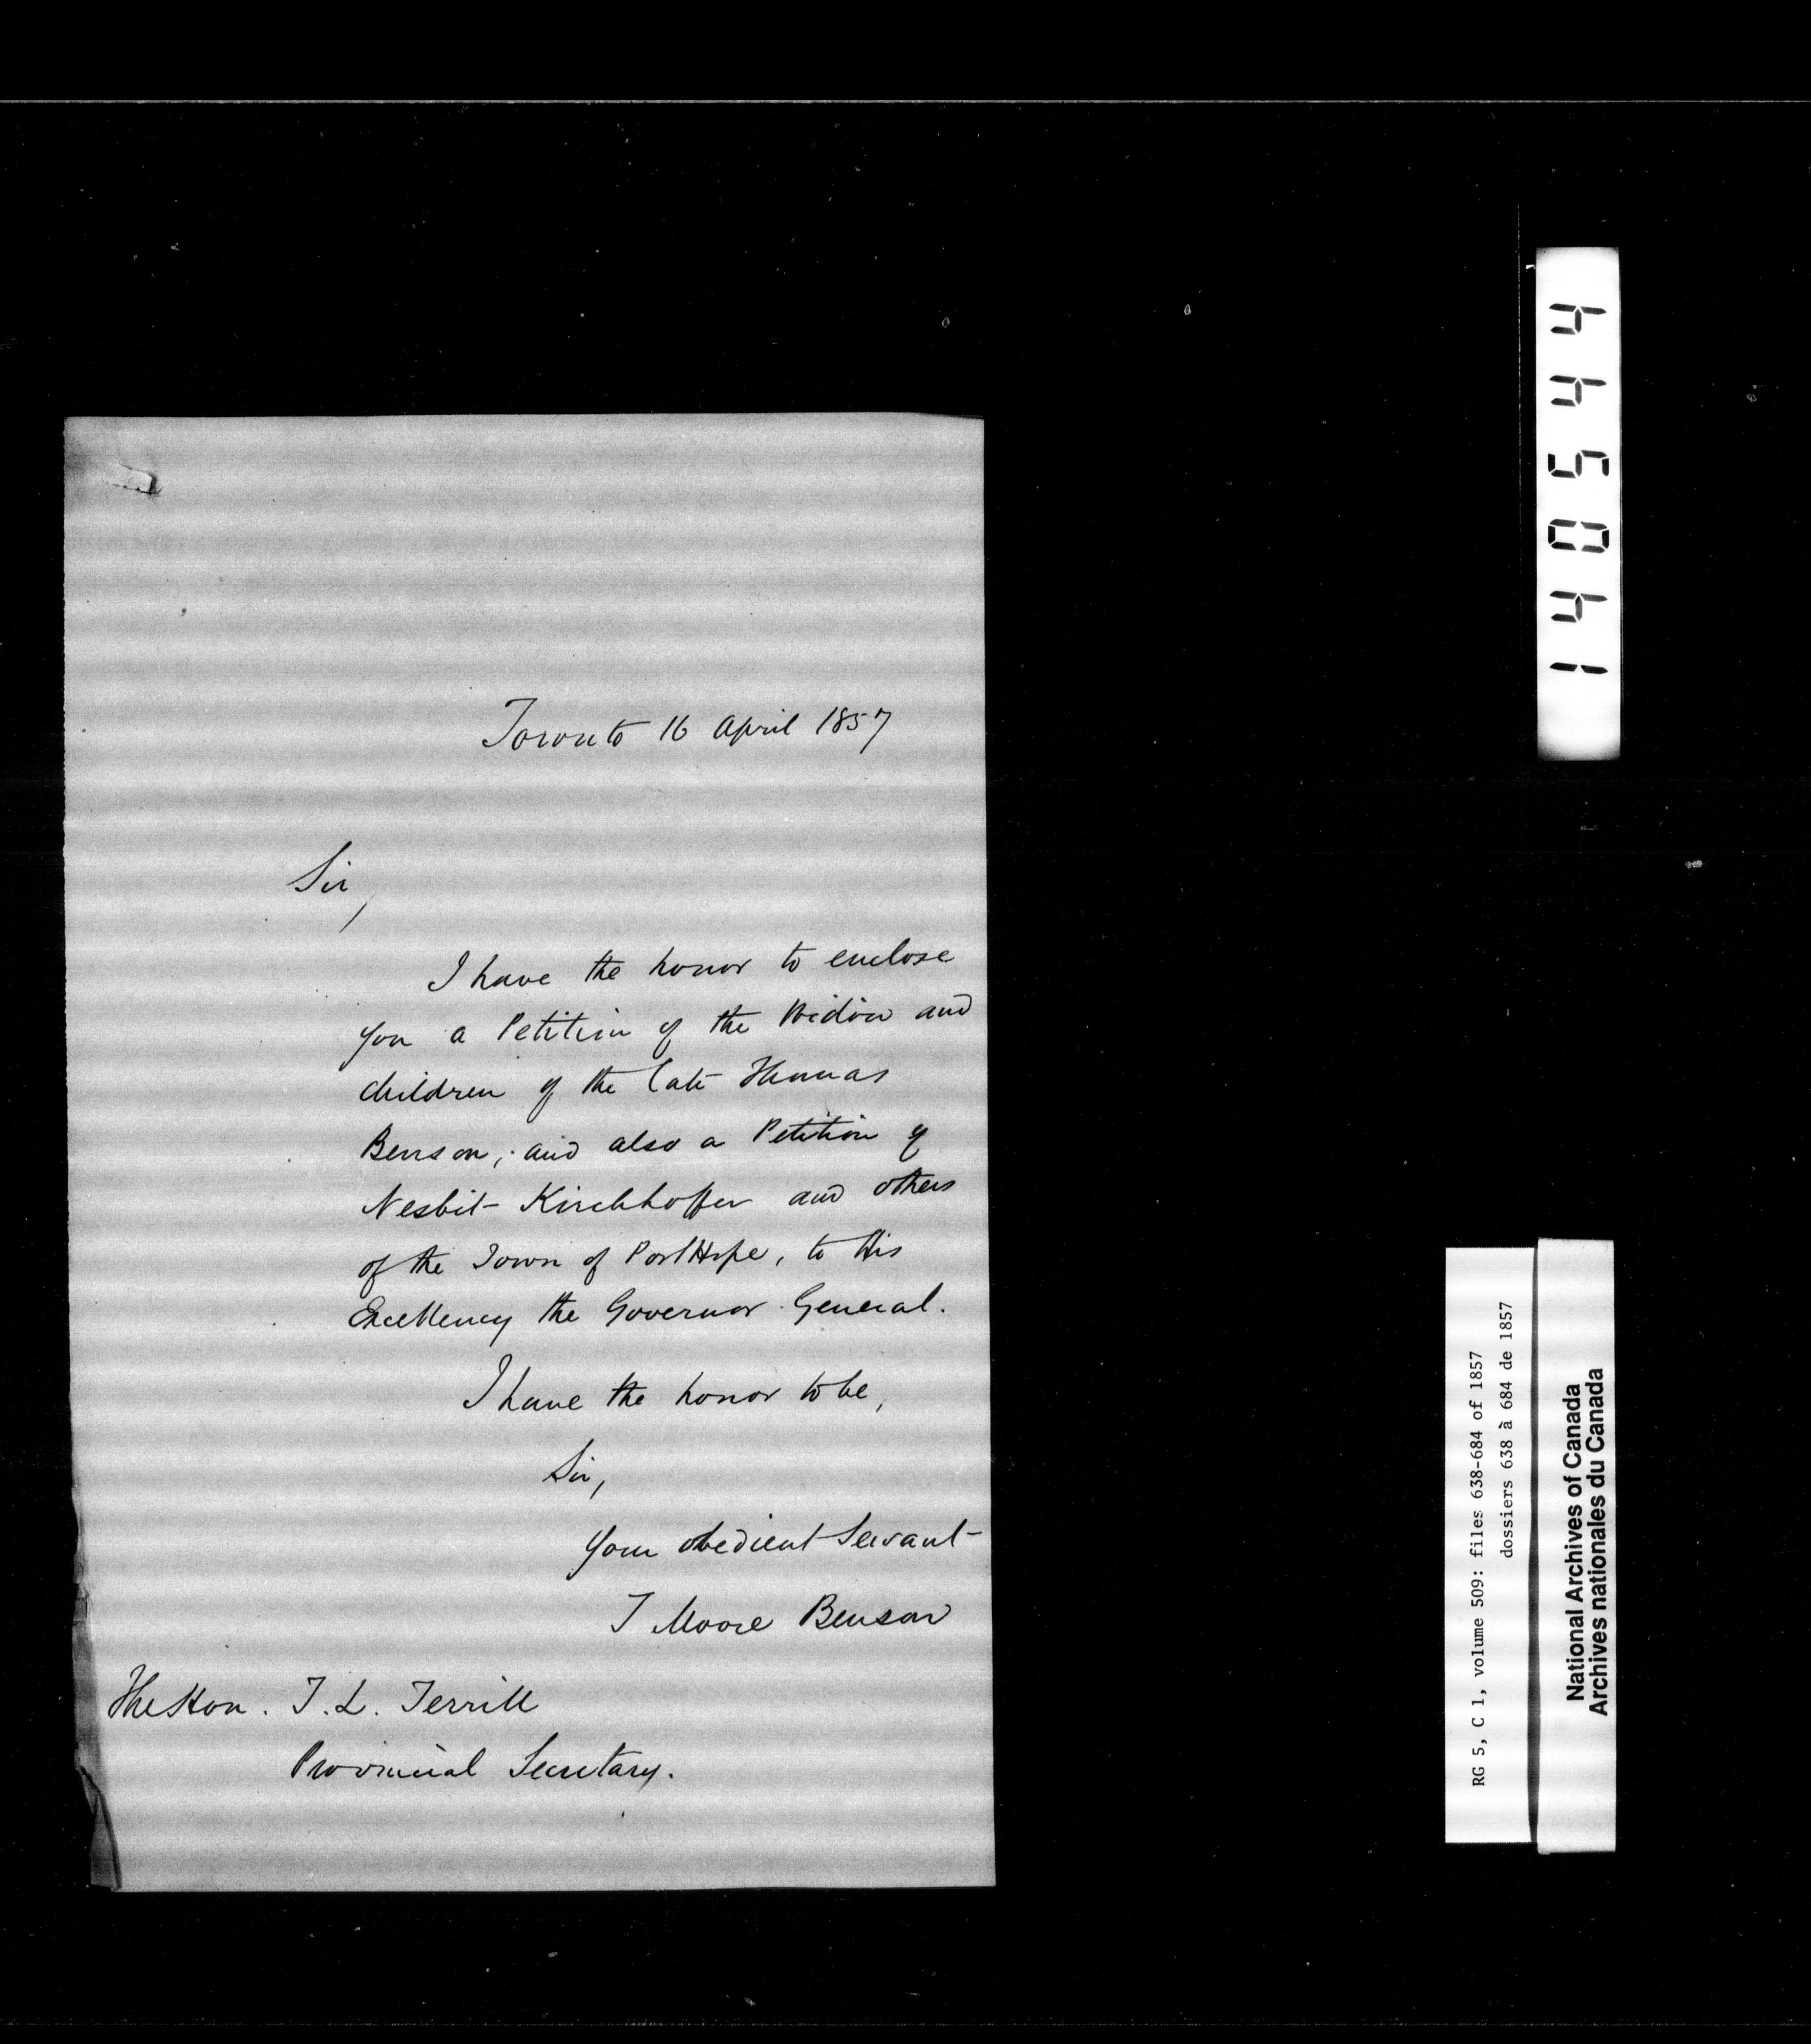 Toronto 16 April 1857
Sir,
I have the honor to enclose
you a Petition of the Widow and
children of the late Thomas
Benson, and also a Petition of
Nesbit Kirchhoffer and others
of the Town of Port Hope, to His
Excellency the Governor General.
I have the honor to be,
Sir,
Your obedient Servant
T Moore Benson
The Hon. T. L. Terrill
Provincial Secretary.
144054
RG 5, C 1, volume 509: files 638-684 of 1857
dossiers 638 à 684 de 1857
National Archives of Canada
Archives nationales du Canada